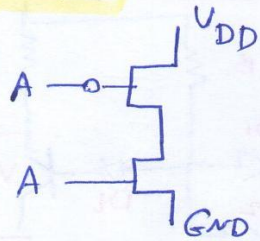 VDD
A
A
GND